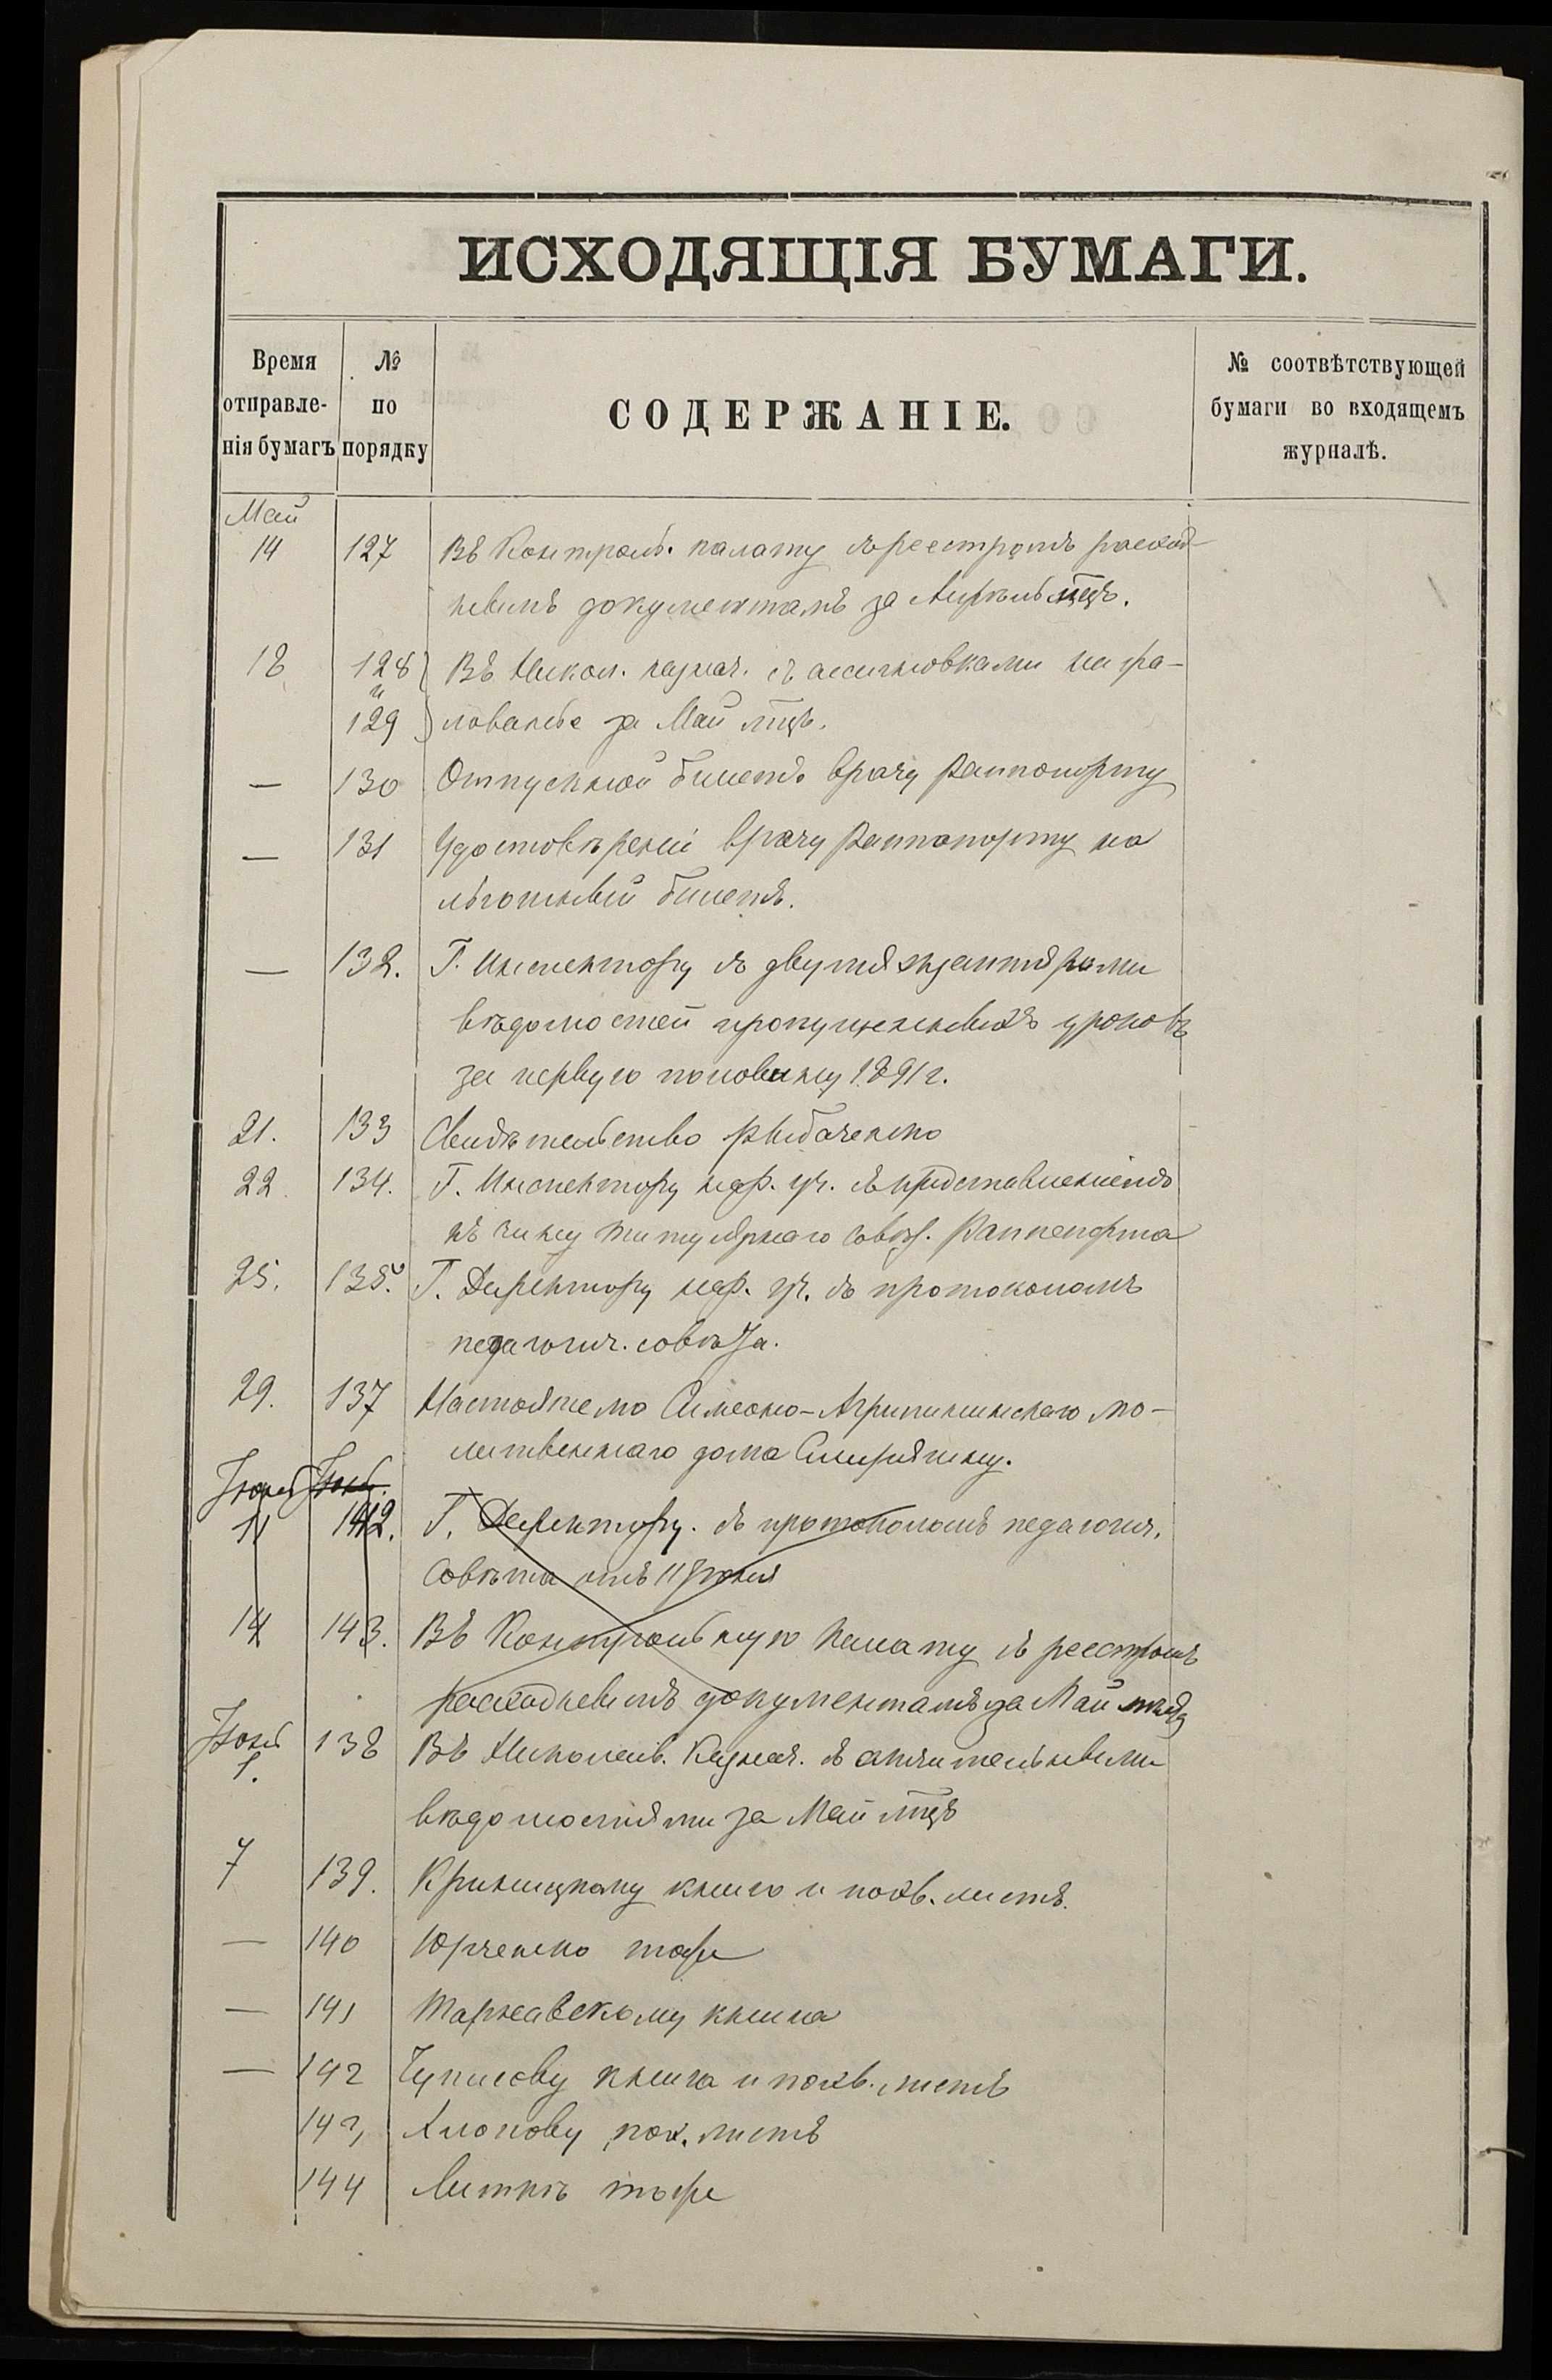 ИСХОДЯЩІЯ БУМАГИ.
Время отправле- нія бумагъ
№ по порядку
СОДЕРЖАНІЕ.
№ соотвѣтствующей бумаги во входящемъ журналѣ.
Май
14 127 Въ Контрольн. палату съ реестромъ расход-
нымъ документамъ за Апрѣль мцъ.
18 128 Въ Никол. казнач. съ ассигновками на жа-
и
129 лованье за Май мцъ.
— 130 Отпускной билетъ врачу Раппопорту
— 131 Удостовѣреніе врачу Раппопорту на
льготный билетъ.
— 132. Г. Инспектору съ двумя экземплярами
вѣдомостей пропущенныхъ уроковъ
за первую половину 1891 г.
21. 133 Свидѣтельство Рыбаченко
22 134. Г. Инспектору нар. уч. съ представленіемъ
къ чину титулярнаго совѣт. Раппопорта
25. 135. Г. Директору нар. уч. съ протоколомъ
педагогич. совѣта.
29. 137 Настоятелю Симеоно-Агрипининскаго мо-
литвеннаго дома
Іюнь Іюнь.
11 142. Г. Директору. съ протоколомъ педагогич.
Совѣта отъ 11 Іюня
14 143. Въ Контрольную Палату съ реестромъ
расходнымъ документамъ за Май мцъ
Іюнь 138 Въ Николаев. Казнач. съ отчетными
1.
вѣдомостями за Май мцъ
7 139. Криницкому книга и похв. листъ.
— 140 Юрченко тоже
— 141 Тарнавскому книга
— 142 Чупилову книга и похв. листъ
143 Хлопову пох. листъ
144 Литкѣ тоже